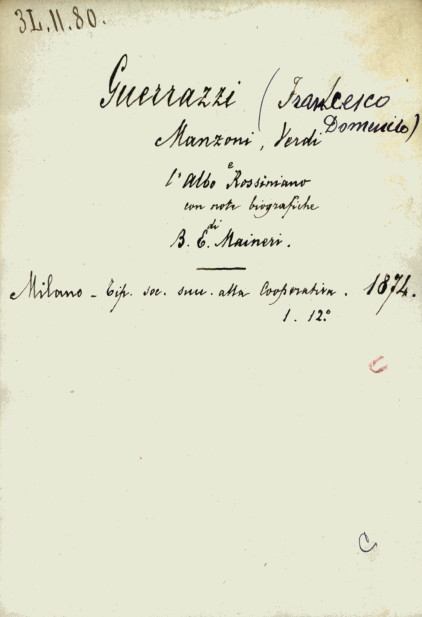 3L.11.80.
Guerrazzi (Francesco
Domenico)
Manzoni, Verdi
e
l'Albo Rossiniano
con note biografiche
di
B. E. Maineri.
Milano - Tip. soc. succ. alla Cooperativa. 1874.
1. 12.º
C
C